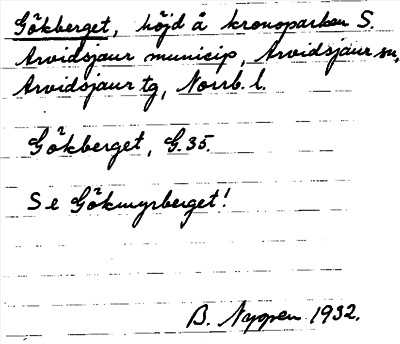 Gökberget, höjd å kronoparken S.
Arvidsjaur municip, Arvidsjaur sn,
Arvidsjaur tg, Norrb. l.
Gökberget, G.35.
Se Gökmyrberget!
B. 1932.